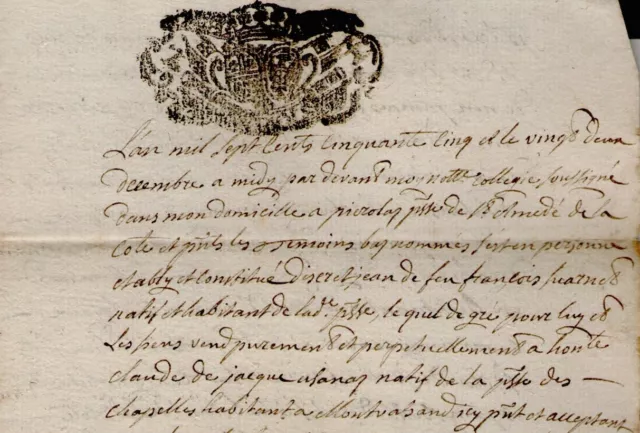 L'an mil sept Cents Cinquante Cinq et le vingt deux
decembre a midy par devant moy notte. Collegié soussigné
dans mon domicille a pierolaz psse de St Amedé de la
Cote et pnts les temoins bas nommes s'est en personne
etably et Constitué discret jean de feu françois
natif et habitant de lade. psse, le quel de gré pour luy et
Les siens vend purement et perpetuellement a honte
claude de jacque natif de la psse des
chapelles habitant a Montvalezand icy pnt et acceptant